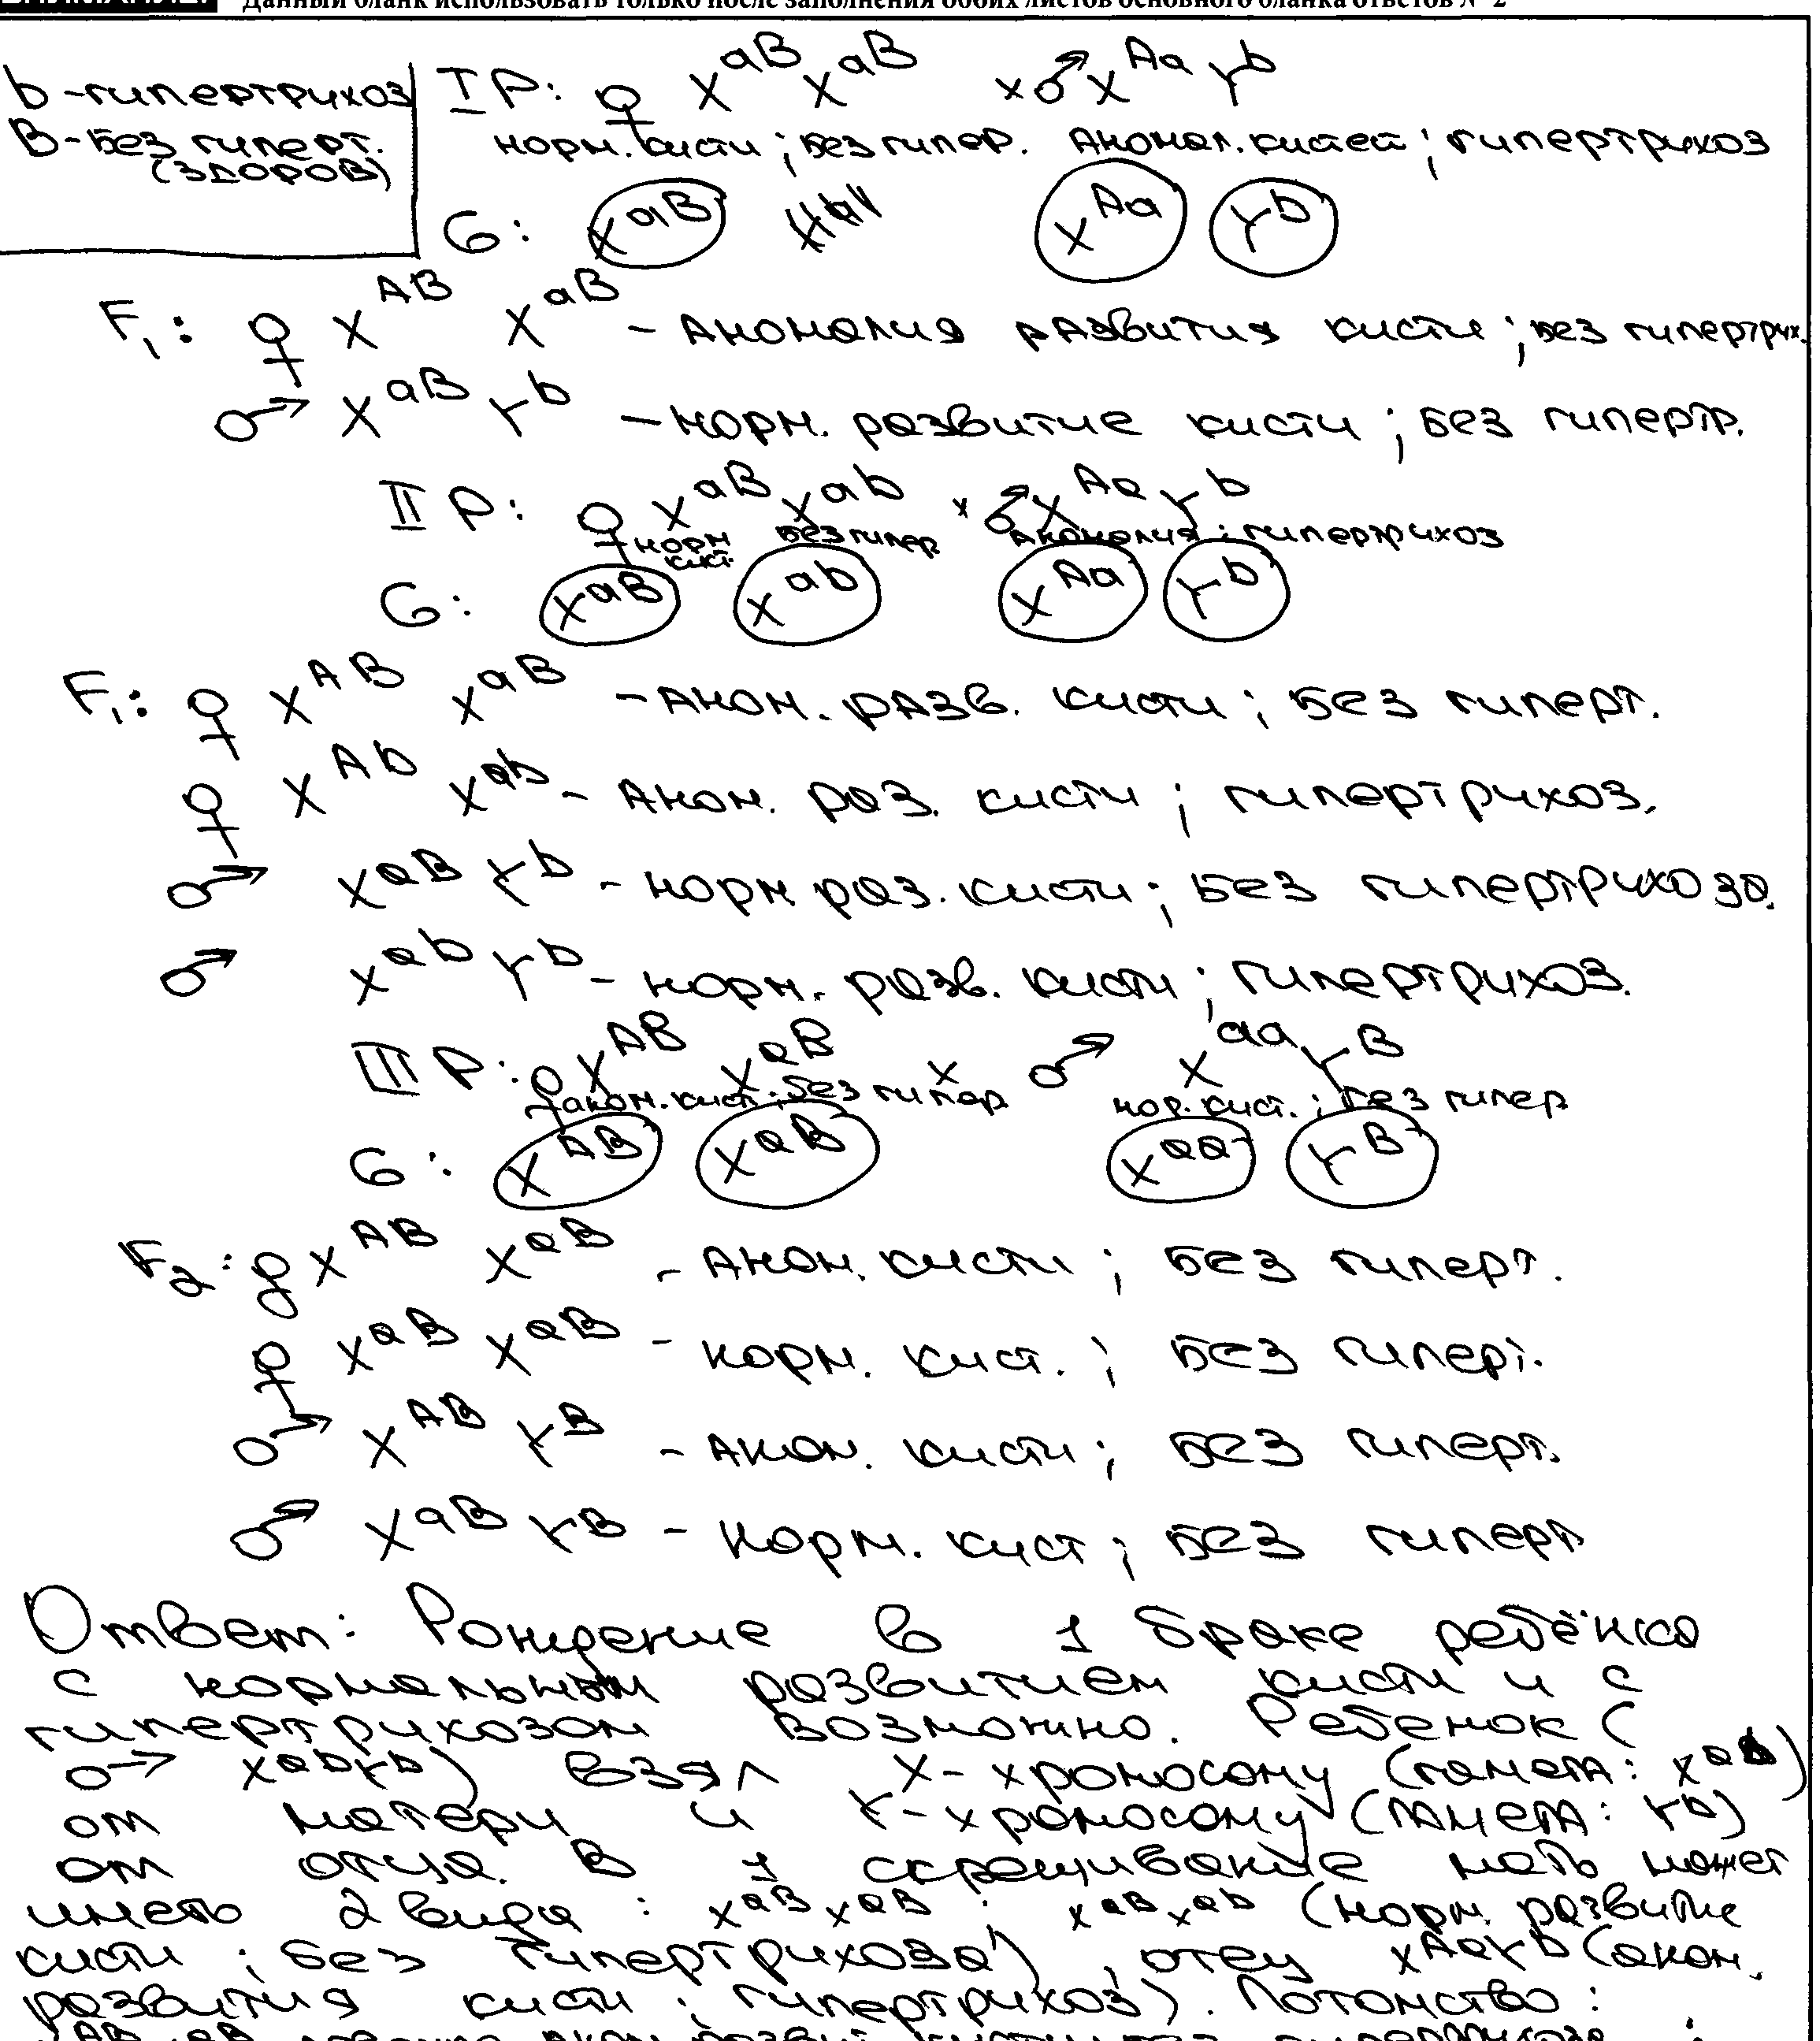 Данный бланк использовать только после заполнения обоих листов основного бланка ответов № 2
b - гипертрихоз
B - без гиперт.
(здоров)
I P: ♀ X^aB X^aB × ♂ X^Aa Y^b
норм. кисти ; без гипер. Аномал. кистей ; гипертрихоз
G: X^aB X^Aa Y^b
F1: ♀ X^AB X^aB - Аномалия развития кисти ; без гипертрих.
♂ X^aB Y^b - норм. развитие кисти ; без гиперт.
II P: ♀ X^aB X^ab × ♂ X^Aa Y^b
норм кист. без гипер Аномалия ; гипертрихоз
G: X^aB X^ab X^Aa Y^b
F1: ♀ X^AB X^aB - Аном. разв. кисти ; без гиперт.
♀ X^Ab X^ab - Аном. раз. кисти ; гипертрихоз.
♂ X^aB Y^b - норм раз. кисти ; без гипертрихоза.
♂ X^ab Y^b - норм. разв. кисти ; гипертрихоз.
III P: ♀ X^AB X^aB × ♂ X^aa Y^B
аном. кист ; без гипер нор. кист. ; без гипер
G: X^AB X^aB X^aa Y^B
F2: ♀ X^AB X^aB - Аном. кисти ; без гиперт.
♀ X^aB X^aB - норм. кист. ; без гиперт.
♂ X^AB Y^B - Аном. кисти ; без гиперт.
♂ X^aB Y^B - норм. кист ; без гиперт
Ответ: Рождение в 1 браке ребёнка
с нормальным развитием кисти и с
гипертрихозом возможно. Ребенок (
♂ X^ab Y^b) взял X-хромосому (гамета: X^ab)
от матери и Y-хромосому (гамета: Y^b)
от отца. В 1 скрещивание мать может
иметь 2 вида : X^aB X^aB ; X^aB X^ab (норм. развитие
кисти ; без гипертрихоза) , отец X^Aa Y^b (аном.
развития кисти ; гипертрихоз). Потомство :